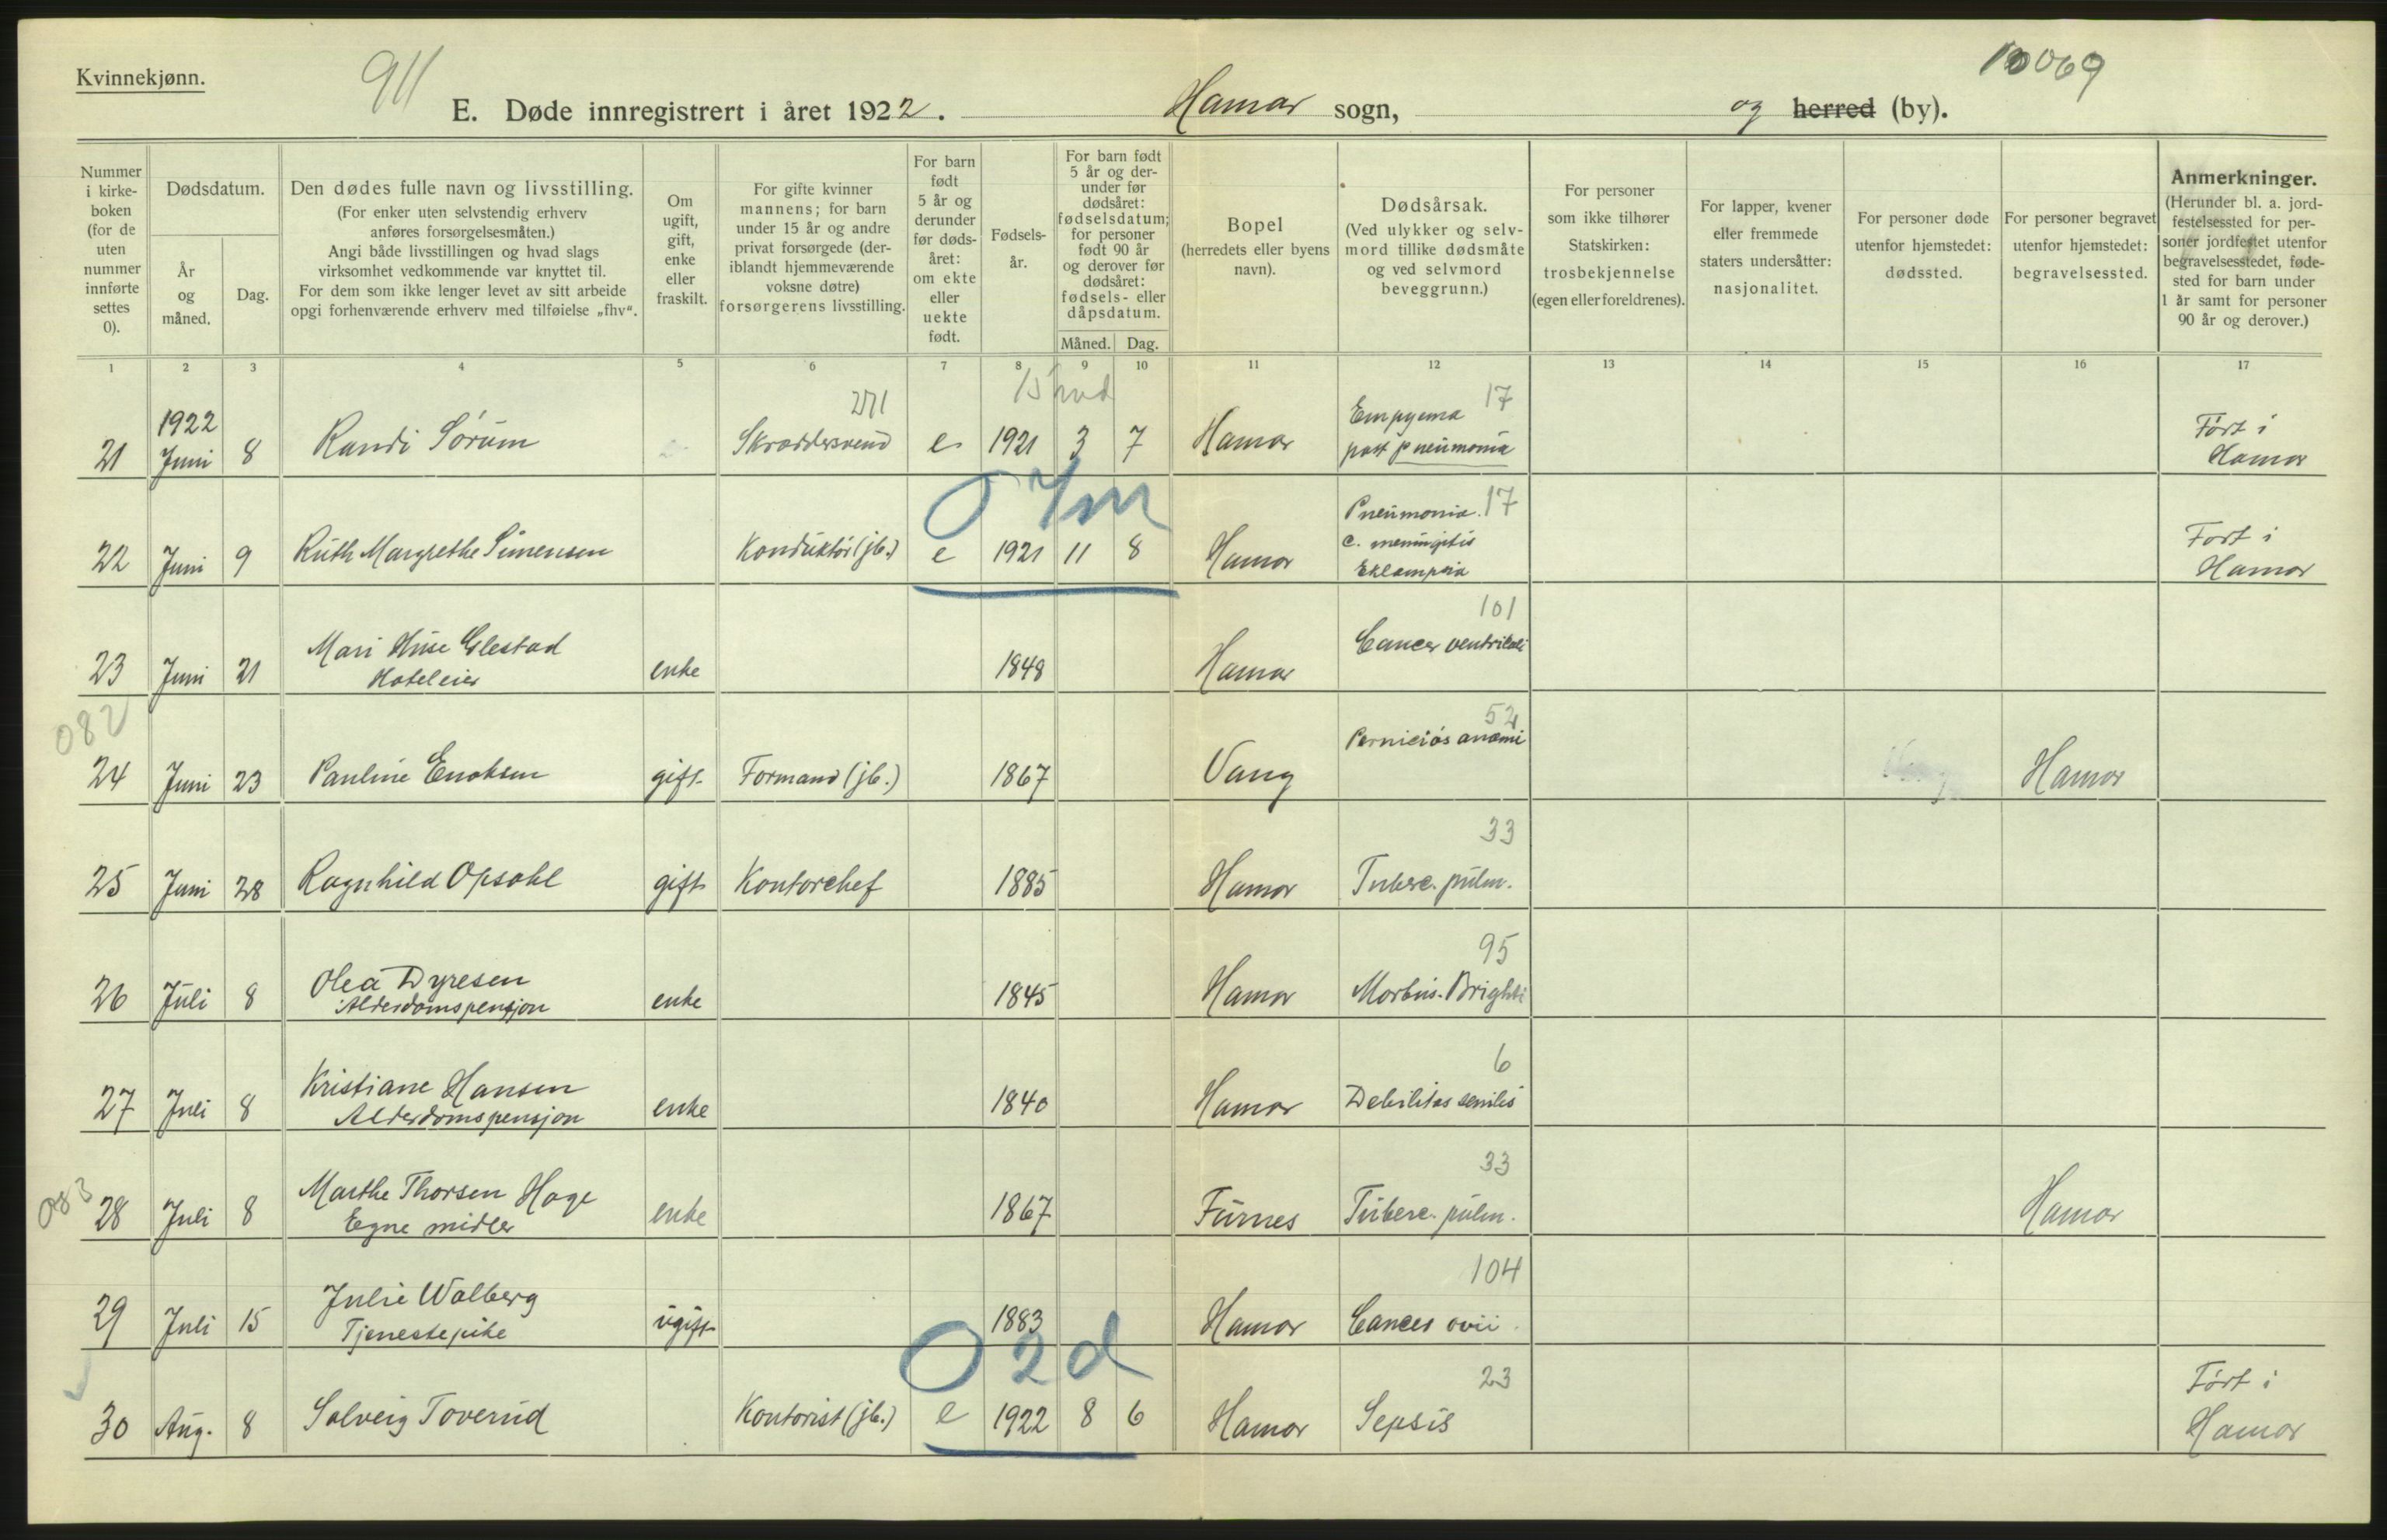 Kvinnekjønn.
911
10069
E. Døde innregistrert i året 1922. Hamar sogn, og herred (by).
Nummer i kirke- boken (for de uten nummer innførte settes 0).
Dødsdatum.
År og måned.
Dag.
Den dødes fulle navn og livsstilling.
(For enker uten selvstendig erhverv
anføres forsørgelsesmåten.)
Angi både livsstillingen og hvad slags
virksomhet vedkommende var knyttet til.
For dem som ikke lenger levet av sitt arbeide
opgi forhenværende erhverv med tilføielse „fhv“.
Om ugift, gift, enke eller fraskilt.
For gifte kvinner
mannens; for barn
under 15 år og andre
privat forsørgede (der-
iblandt hjemmeværende
voksne døtre)
forsørgerens livsstilling.
For barn født 5 år og derunder før døds- året: om ekte eller uekte født.
Fødsels- år.
For barn født 5 år og der- under før dødsåret: fødselsdatum; for personer født 90 år og derover før dødsåret: fødsels- eller dåpsdatum.
Måned. Dag.
Bopel
(herredets eller byens
navn).
Dødsårsak.
(Ved ulykker og selv-
mord tillike dødsmåte
og ved selvmord
beveggrunn.)
For personer
som ikke tilhører
Statskirken:
trosbekjennelse
(egen eller foreldrenes).
For lapper, kvener
eller fremmede
staters undersåtter:
nasjonalitet.
For personer døde
utenfor hjemstedet:
dødssted.
For personer begravet
utenfor hjemstedet:
begravelsessted.
Anmerkninger.
(Herunder bl. a. jord-
festelsessted for per-
soner jordfestet utenfor
begravelsesstedet, føde-
sted for barn under
1 år samt for personer
90 år og derover.)
1 2 3 4 5 6 7 8 9 10 11 12 13 14 15 16 17
271 15 md 17
21 1922 Juni 8 Randi Sørum Skræddersvend e 1921 3 7 Hamar Empyema post pneumonia Født i Hamar
0 7m
22 Juni 9 Ruth Margrethe Simensen Konduktör (jb.) e 1921 11 8 Hamar Pneumonia. 17 c. meningitis Eklampsia Født i Hamar
101
23 Juni 21 Mari Huse Elestad Hoteleier enke 1848 Hamar Cancer ventriculi
082 52
24 Juni 23 Pauline Enoksen gift Formand (jb.) 1867 Vang Perniciøs anæmi Hamar
33
25 Juni 28 Ragnhild Opsahl gift Kontorchef 1885 Hamar Tuberc. pulm.
95
26 Juli 8 Olea Dyresen Alderdomspensjon enke 1845 Hamar Morbus. Brighti
6
27 Juli 8 Kristiane Hansen Alderdomspensjon enke 1840 Hamar Debilitas senilis
083 33
28 Juli 8 Marthe Thorsen Hage Egne midler enke 1867 Furnes Tuberc. pulm. Hamar
104
29 Juli 15 Julie Walberg Tjenestepike ugift 1883 Hamar Cancer ovii.
0 2d 23
30 Aug. 8 Solveig Toverud Kontorist (jb.) e 1922 8 6 Hamar Sepsis Født i Hamar